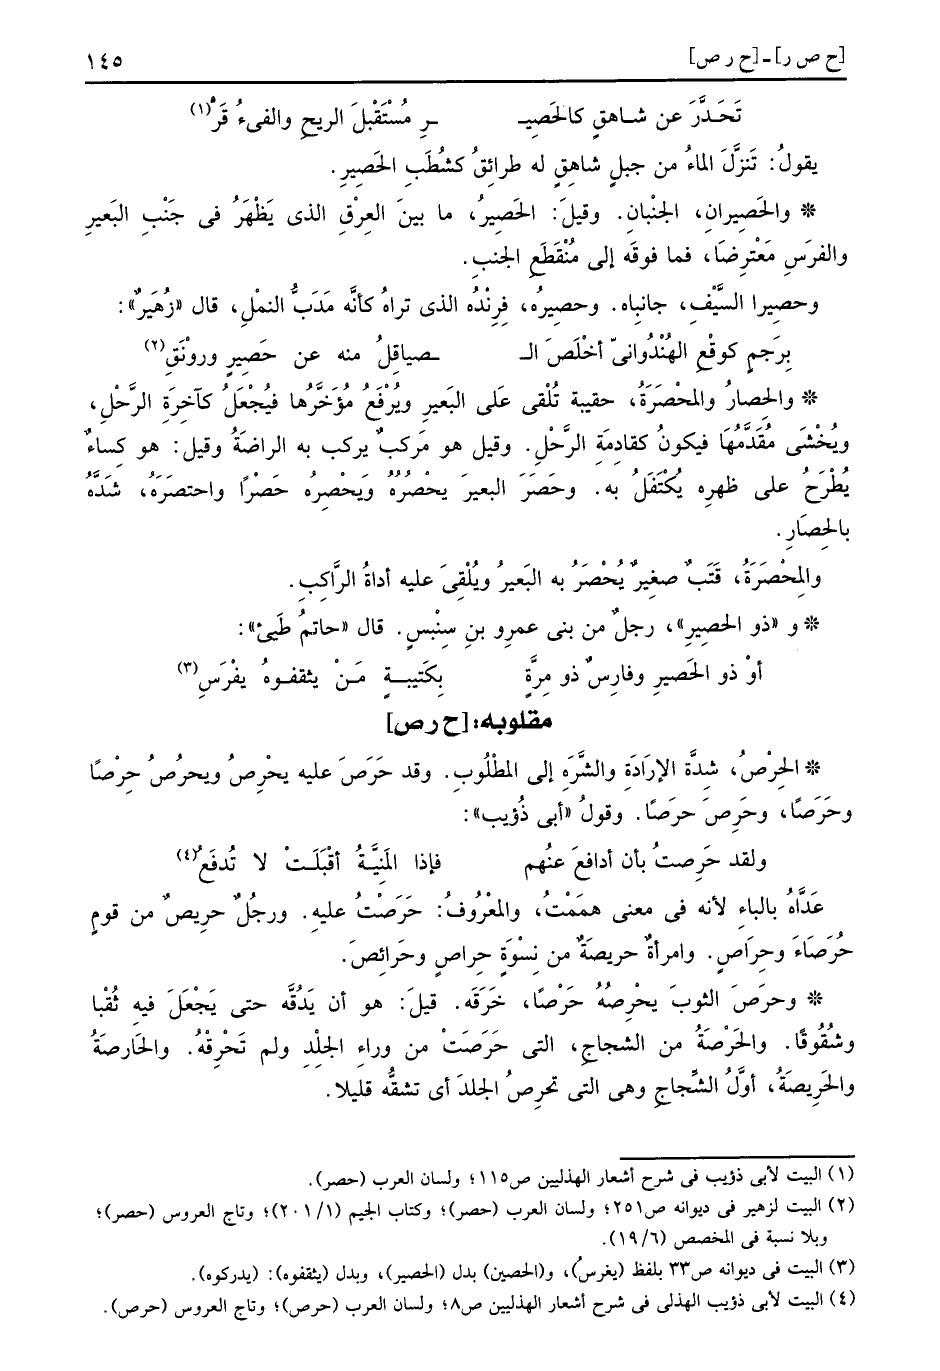 [ح ص ر] - [ح ر ص] ١٤٥
تَحَدَّرَ عن شـاهقٍ كالحَصيـ ـرِ مُسْتَقْبلَ الريحِ والفىءُ قَرْ(١)
يقولُ: تَنزَّلَ الماءُ من جبلٍ شاهِقٍ له طرائقُ كشُطَبِ الحَصِيرِ.
* والحَصيران، الجنْبانِ. وقيلَ: الحَصيرُ، ما بينَ العِرْقِ الذى يَظْهَرُ فى جَنْبِ البَعيرِ
والفرَسِ مَعْترِضَا، فما فوقَه إلى مُنْقَطَعِ الجنبِ.
وحصيرا السَّيْفِ، جانباه. وحصيرُه، فرِنْدُه الذى تراهُ كأنَّه مَدَبُّ النملِ، قال «زُهَيرٌ»:
بِرَجمٍ كوقْعِ الهُنْدُوانىِّ أخْلَصَ الـ ـصياقلُ منه عن حَصيرٍ ورونَقِ(٢)
* والحِصارُ والمحْصَرَةُ، حقيبة تُلْقى عَلى البَعيرِ ويُرْفَعُ مؤَخَّرُها فيُجْعَلُ كآخِرَةِ الرَّحْلِ،
ويُحْشَى مُقَدَّمُهَا فيكونُ كقادِمَةِ الرحْلِ. وقيل هو مَركبٌ يركب به الراضَةُ وقيل: هو كساءٌ
يُطْرَحُ على ظهرِه يُكْتَفَلُ به. وحَصَرَ البعيرَ يحْصُرُهُ ويَحصِرهُ حَصْرًا واحتصَرَهُ، شَدَّهُ
بالحِصَارِ.
والمِحْصَرَةُ، قَتَبٌ صغيرٌ يُحْصَرُ به البَعيرُ ويُلْقىَ عليه أداةُ الرَّاكِبِ.
* و «ذو الحصيرِ»، رجلٌ من بنى عمرو بنِ سِنْبسٍ. قال «حاتمُ طَيئ»:
أوْ ذو الحَصيرِ وفارِسٌ ذو مِرَّةٍ بِكَتيبـةٍ مَـنْ يثقفـوهُ يفْرَسِ(٣)
مقلوبه: [ح ر ص]
* الحِرْصُ، شدَّة الإرَادَةِ والشَّرَهِ إلى المطْلُوبِ. وقد حَرَصَ عليه يحْرِصُ ويحرصُ حِرْصًا
وحَرَصًا، وحَرِصَ حرصًا. وقولُ «أبى ذُؤيب»:
ولقد حَرِصتُ بأن أدافعَ عنْهم فإذا المَنِيَّةُ أقْبَلَتْ لا تُدفَعُ(٤)
عَدَّاهُ بالباءِ لأنه فى معنى هممْتُ، والمعْرُوفُ: حَرَصْتُ عليهِ. ورجلٌ حريصٌ من قومٍ
حُرَصَاءَ وحِرَاصٍ. وامرأةٌ حريصَةٌ من نِسْوَةٍ حِراصٍ وحَرائِصَ.
* وحرَصَ الثوبَ يحْرِصهُ حَرْصًا، خَرَقَه. قيلَ: هو أن يَدُقَّه حتى يَجْعَلَ فيه ثُقْبا
وشُقُوقًا. والحَرْصَةُ من الشجاجِ، التى حَرَصَتْ من وراءِ الجلْدِ ولم تَخْرِقْهُ. والحَارِصَةُ
والحَرِيصَةُ، أوَّلُ الشِّجاجِ وهى التى تحرِصُ الجلدَ أى تشقُّه قليلا.
(١) البيت لأبى ذؤيب فى شرح أشعار الهذليين ص١١٥؛ ولسان العرب (حصر).
(٢) البيت لزهير فى ديوانه ص٢٥١؛ ولسان العرب (حصر)؛ وكتاب الجيم (٢٠١/١)؛ وتاج العروس (حصر)؛
وبلا نسبة فى المخصص (١٩/٦).
(٣) البيت فى ديوانه ص٣٣ بلفظ (يغرسُ)، و(الحصين) بدل (الحصير)، وبدل (يثقفوه): (يدركوه).
(٤) البيت لأبى ذؤيب الهذلى فى شرح أشعار الهذليين ص٨؛ ولسان العرب (حرص)؛ وتاج العروس (حرص).